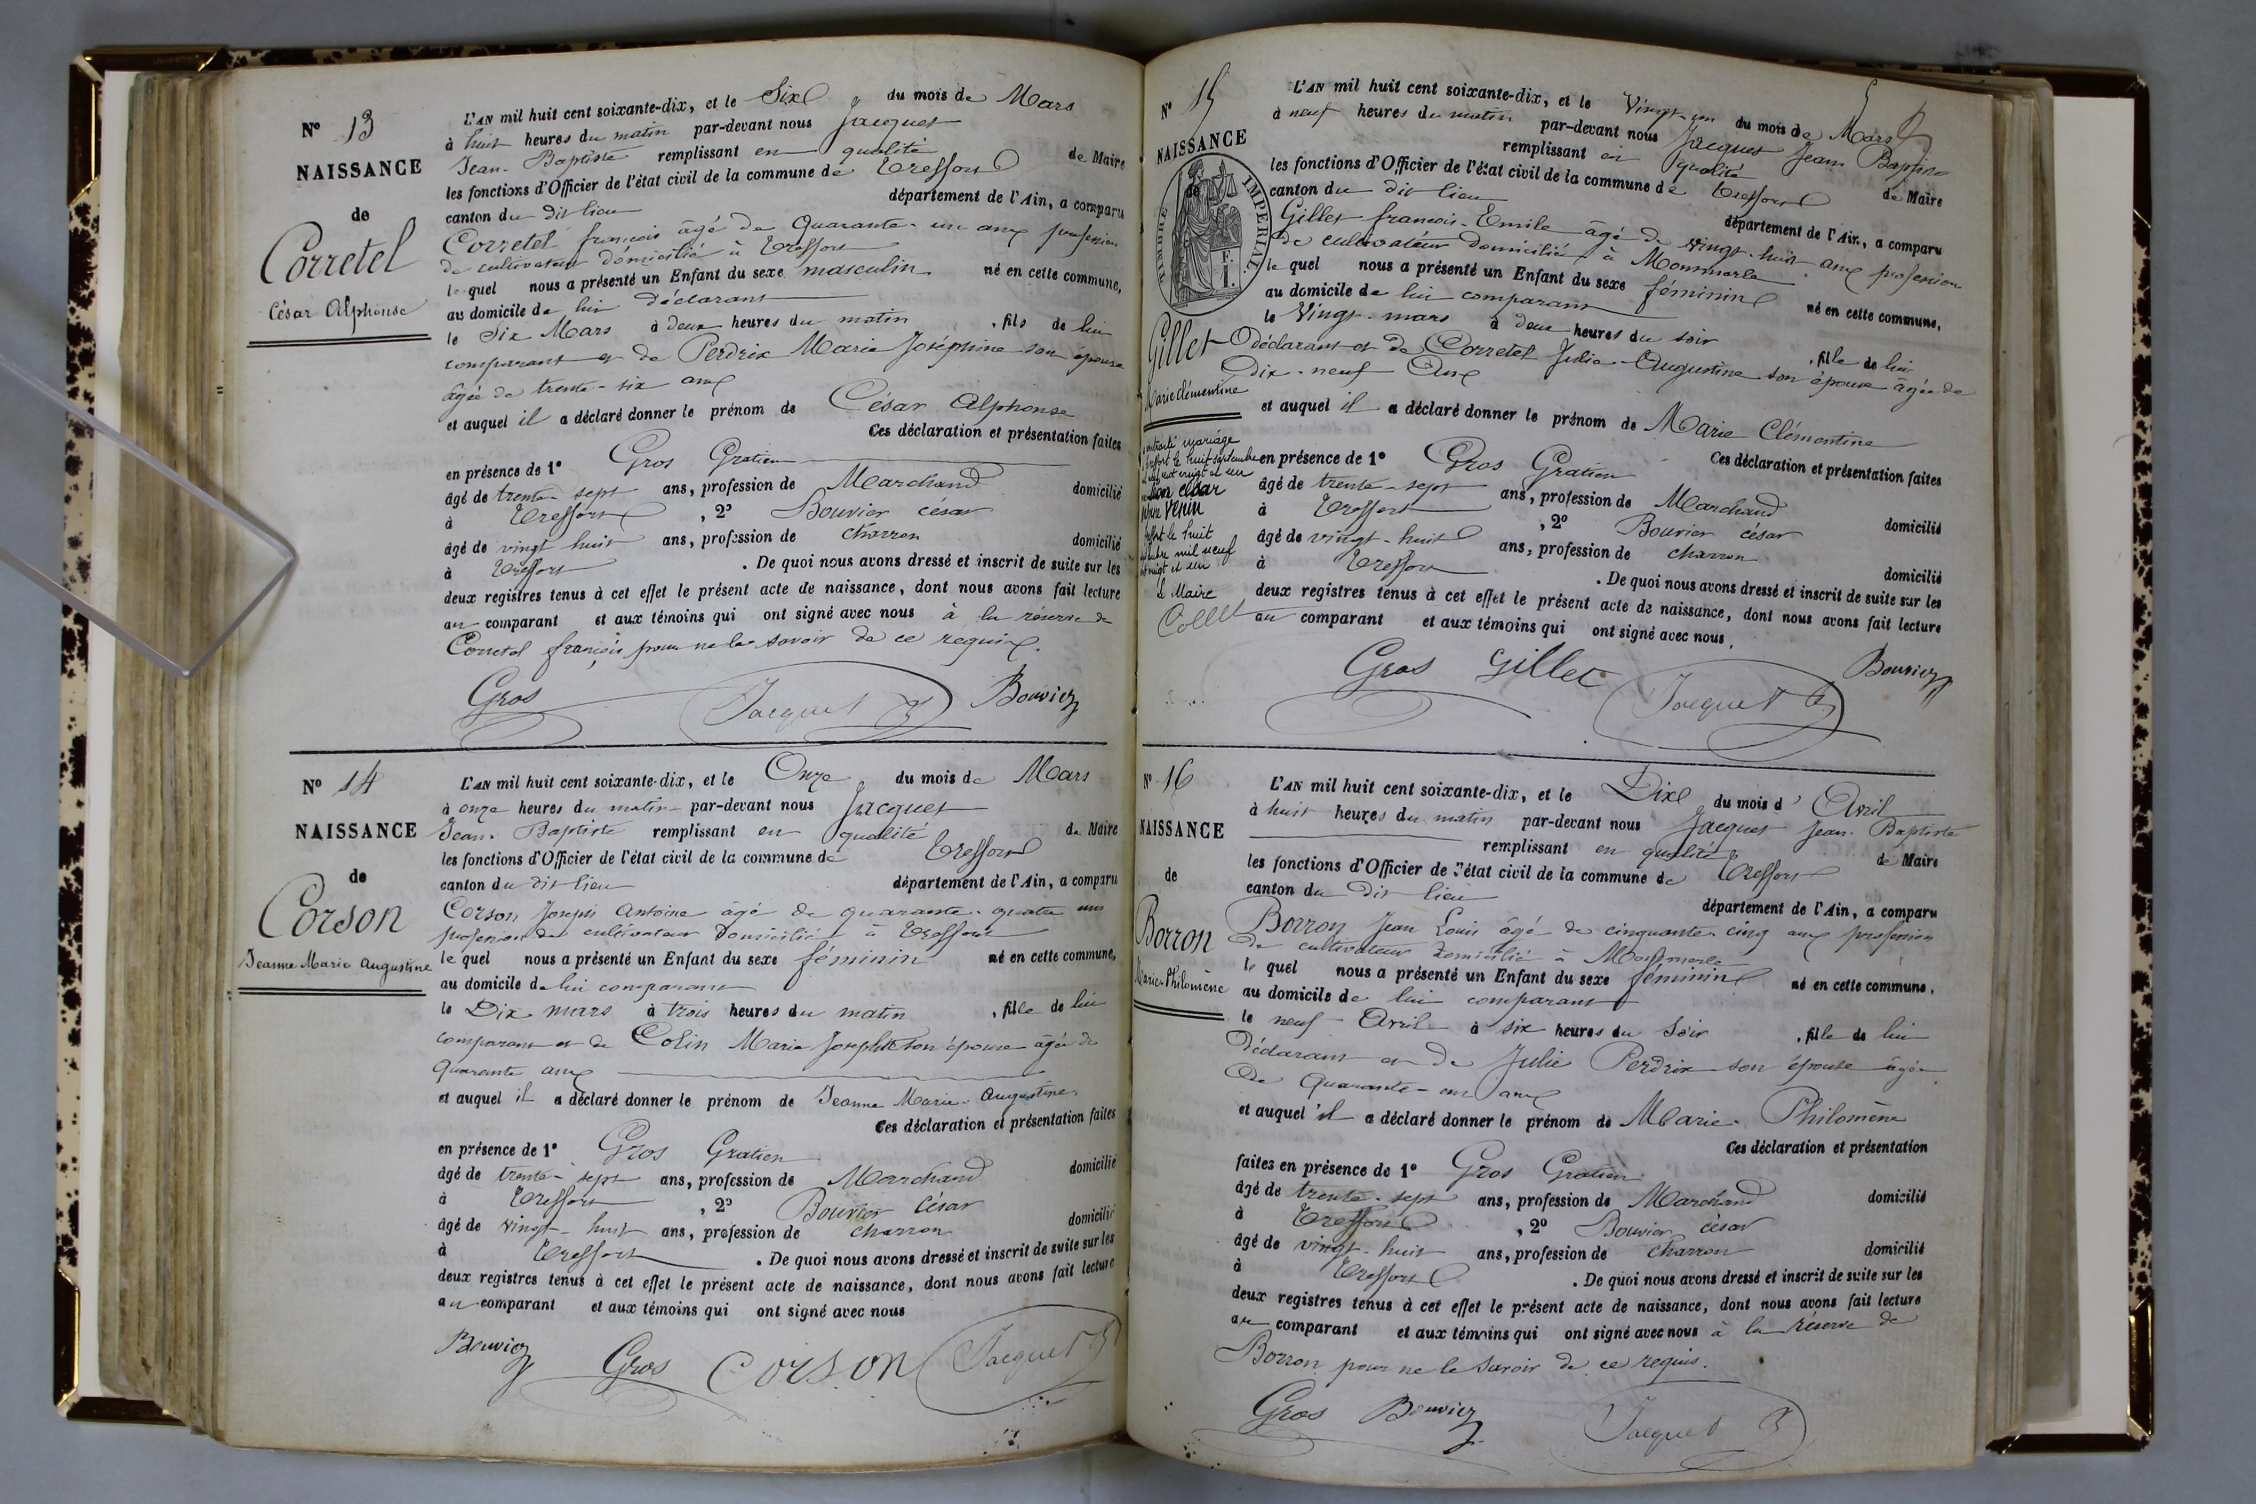 N° 13
NAISSANCE
de
Corretel
César Alphonse
L'AN mil huit cent soixante-dix, et le Six du mois de Mars
à huit heures du matin par-devant nous Jacquet
Jean-Baptiste remplissant en qualité de Maire
les fonctions d'Officier de l'état civil de la commune de Treffort
canton du dit lieu département de l'Ain, a comparu
Corretel françois âgé de Quarante-un ans profession
de cultivateur domicilié à Treffort
lequel nous a présenté un Enfant du sexe masculin né en cette commune,
au domicile de lui déclarant
le Six Mars à deux heures du matin, fils de lui
comparant et de Perdrix Marie Joséphine son épouse
âgée de trente-six ans
et auquel il a déclaré donner le prénom de César Alphonse
Ces déclaration et présentation faites
en présence de 1° Gros Gratien
âgé de trente-sept ans, profession de Marchand domicilié
à Treffort, 2° Bouvier César
âgé de vingt huit ans, profession de charron domicilié
à Treffort. De quoi nous avons dressé et inscrit de suite sur les
deux registres tenus à cet effet le présent acte de naissance, dont nous avons fait lecture
au comparant et aux témoins qui ont signé avec nous à la réserve de
Corretel françois pour ne le savoir de ce requis.
Gros Jacquet Bouvier
N° 14
NAISSANCE
de
Corson
Jeanne Marie Augustine
L'AN mil huit cent soixante-dix, et le Onze du mois de Mars
à onze heures du matin par-devant nous Jacquet
Jean-Baptiste remplissant en qualité de Maire
les fonctions d'Officier de l'état civil de la commune de Treffort
canton du dit lieu département de l'Ain, a comparu
Corson Joseph Antoine âgé de quarante-quatre ans
profession de cultivateur domicilié à Treffort
lequel nous a présenté un Enfant du sexe féminin né en cette commune,
au domicile de lui comparant
le Dix mars à trois heures du matin, fille de lui
comparant et de Colin Marie Josephte son épouse âgée de
quarante ans
et auquel il a déclaré donner le prénom de Jeanne Marie-Augustine
Ces déclaration et présentation faites
en présence de 1° Gros Gratien
âgé de trente-sept ans, profession de Marchand domicilié
à Treffort, 2° Bouvier César
âgé de vingt-huit ans, profession de charron domicilié
à Treffort. De quoi nous avons dressé et inscrit de suite sur les
deux registres tenus à cet effet le présent acte de naissance, dont nous avons fait lecture
au comparant et aux témoins qui ont signé avec nous
Bouvier Gros Corson Jacquet
N° 15
NAISSANCE
de
TIMBRE IMPERIAL
Gillet
Marie Clémentine
contracté mariage
Treffort le huit septembre
cent vingt et un
César
Venin
Treffort le huit
mil neuf
cent vingt et un
Le Maire
Collet
L'AN mil huit cent soixante-dix, et le Vingt-un du mois de Mars
à neuf heures du matin par-devant nous Jacquet Jean Baptiste
remplissant en qualité de Maire
les fonctions d'Officier de l'état civil de la commune de Treffort
canton du dit lieu département de l'Ain, a comparu
Gillet francois-Emile âgé de vingt-huit ans profession
de cultivateur domicilié à Montmerle
lequel nous a présenté un Enfant du sexe féminin né en cette commune,
au domicile de lui comparant
le Vingt-mars à deux heures du soir, fille de lui
déclarant et de Corretel Julie-Augustine son épouse âgée de
dix-neuf Ans
et auquel il a déclaré donner le prénom de Marie Clémentine
Ces déclaration et présentation faites
en présence de 1° Gros Gratien
âgé de trente-sept ans, profession de Marchand domicilié
à Treffort, 2° Bouvier César
âgé de vingt-huit ans, profession de charron domicilié
à Treffort. De quoi nous avons dressé et inscrit de suite sur les
deux registres tenus à cet effet le présent acte de naissance, dont nous avons fait lecture
au comparant et aux témoins qui ont signé avec nous.
Gros Gillet Jacquet Bouvier
N° 16
NAISSANCE
de
Borron
Marie-Philomène
L'AN mil huit cent soixante-dix, et le Dix du mois d'Avril
à huit heures du matin par-devant nous Jacquet Jean-Baptiste
remplissant en qualité de Maire
les fonctions d'Officier de l'état civil de la commune de Treffort
canton du dit lieu département de l'Ain, a comparu
Borron Jean Louis âgé de cinquante-cinq ans profession
de cultivateur domicilié à Montmerle
lequel nous a présenté un Enfant du sexe féminin né en cette commune,
au domicile de lui comparant
le neuf Avril à six heures du Soir, fille de lui
déclarant et de Julie Perdrix son épouse âgée
de quarante-un ans
et auquel il a déclaré donner le prénom de Marie-Philomène
Ces déclaration et présentation
faites en présence de 1° Gros Gratien
âgé de trente-sept ans, profession de Marchand domicilié
à Treffort, 2° Bouvier César
âgé de vingt-huit ans, profession de charron domicilié
à Treffort. De quoi nous avons dressé et inscrit de suite sur les
deux registres tenus à cet effet le présent acte de naissance, dont nous avons fait lecture
au comparant et aux témoins qui ont signé avec nous à la réserve de
Borron pour ne le savoir de ce requis.
Gros Bouvier Jacquet